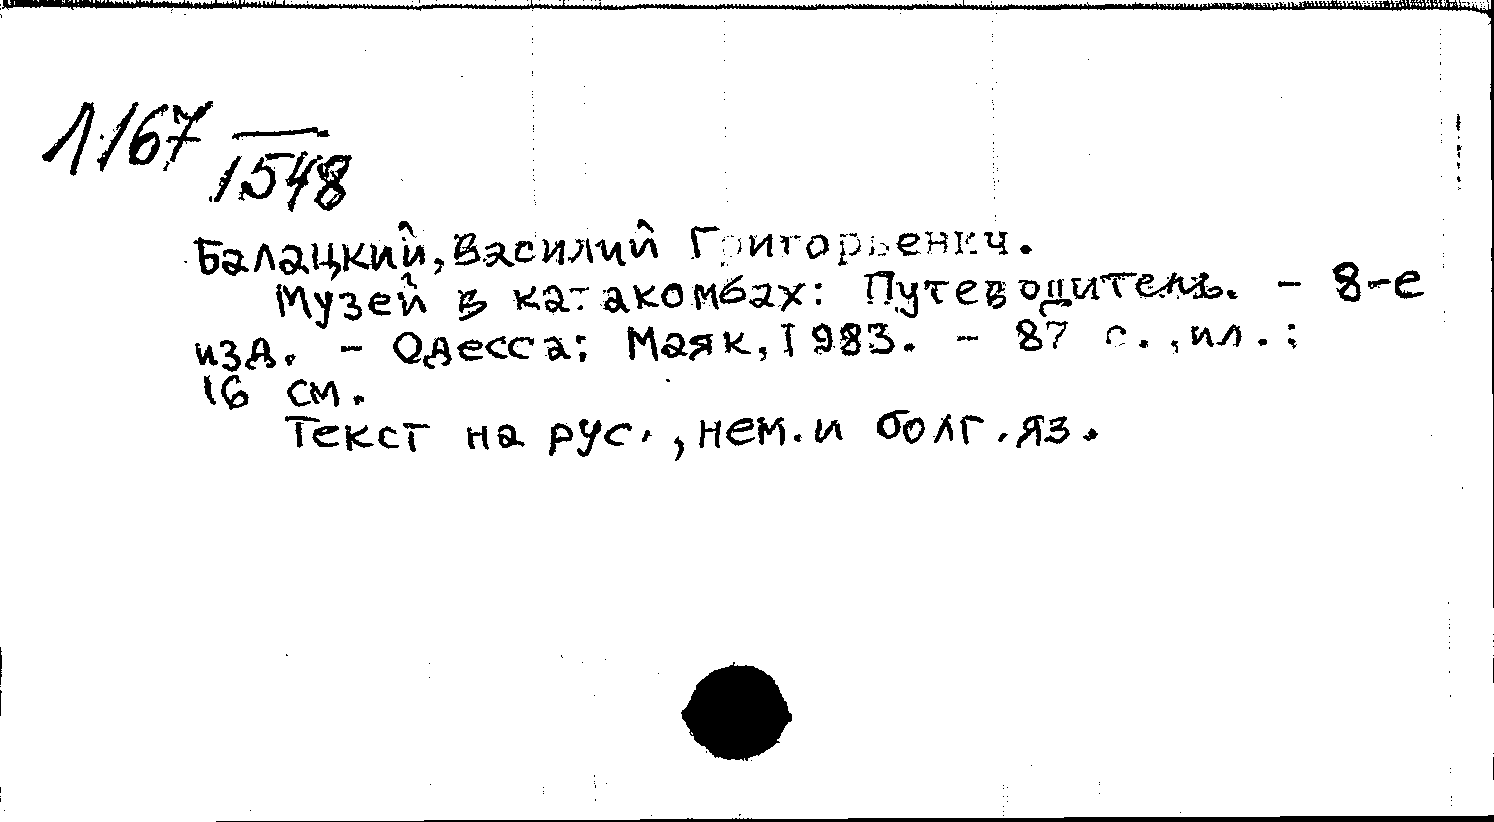 1167
1548
Балацкий, Василий Григорьенич.
Музей в катакомбах: Путеводитель. - 8-е
изд. - Одесса: Маяк, 1983. - 87 с., ил.;
16 см.
Текст на рус., нем. и болг. яз.